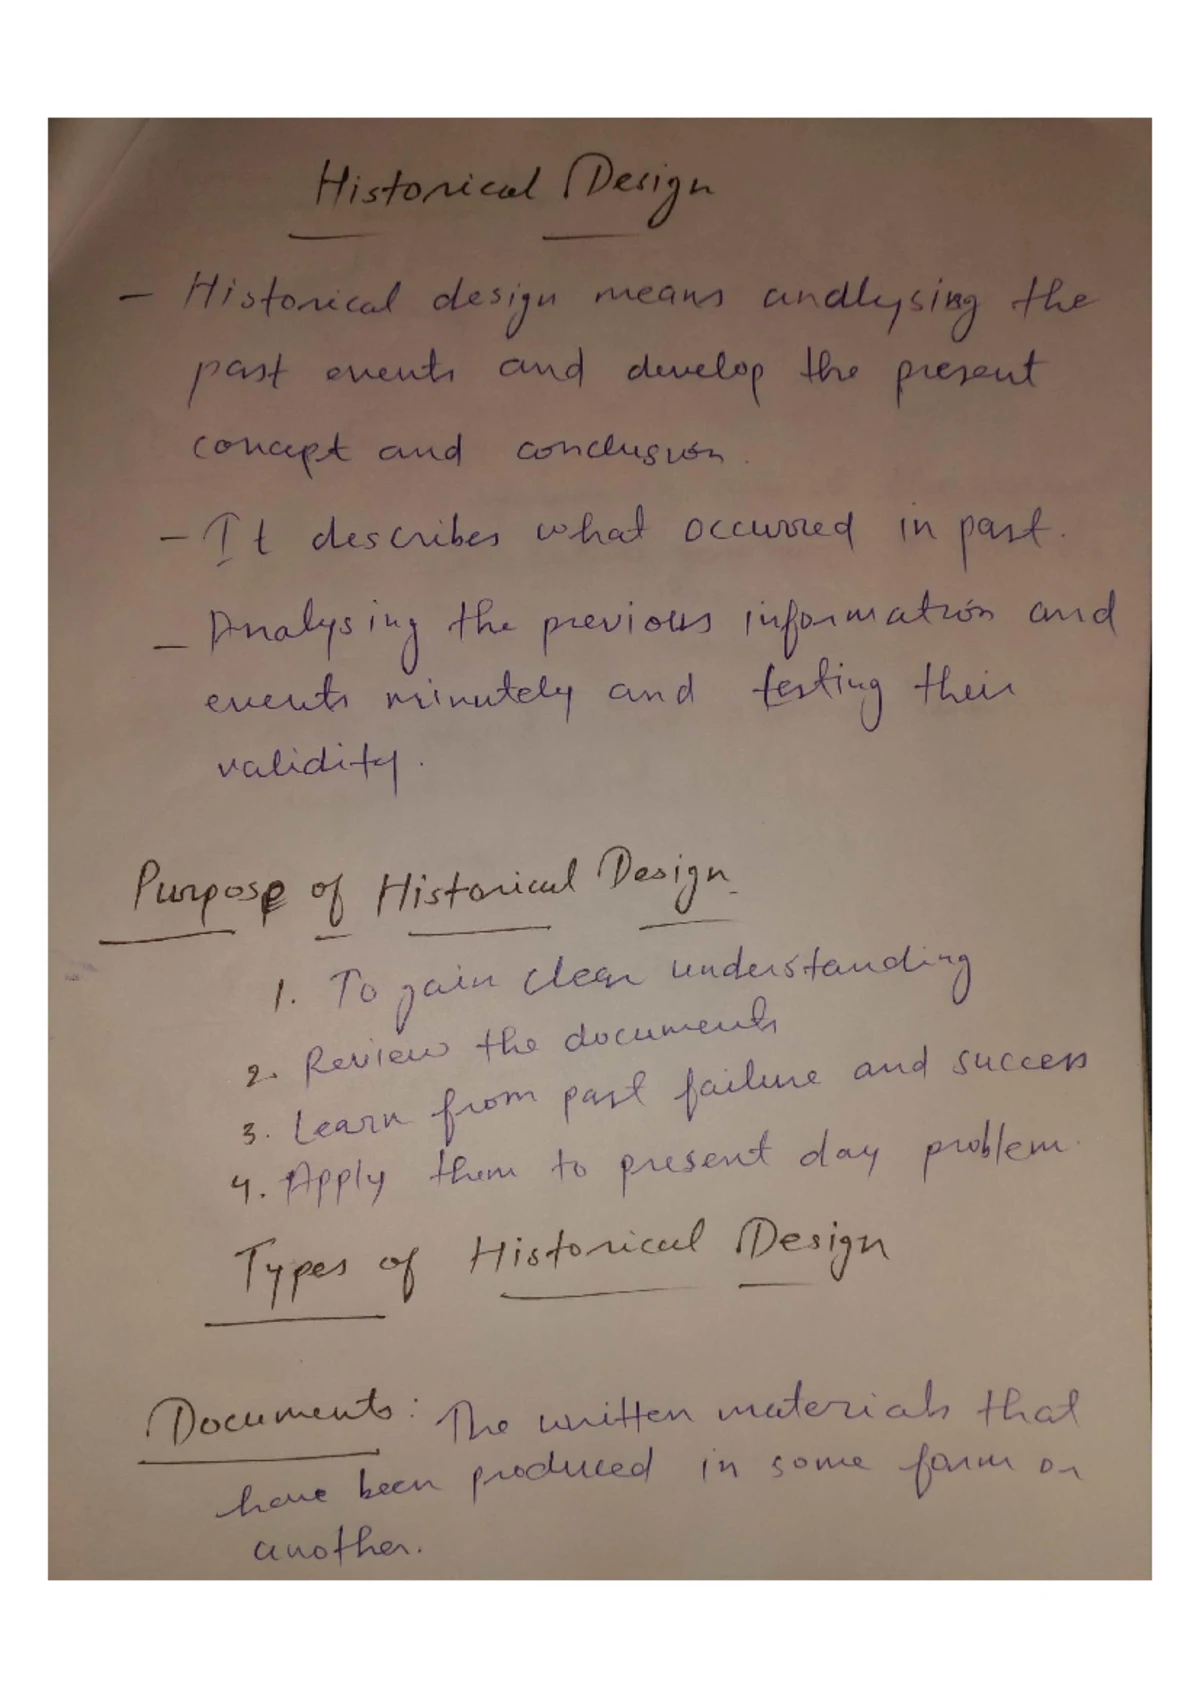 Historical Design
- Historical design means analysing the
past events and develop the present
concept and conclusion.
- It describes what occurred in past.
- Analysing the previous information and
events minutely and testing their
validity.
Purpose of Historical Design.
1. To gain clear understanding
2. Review the documents
3. Learn from past failure and success
4. Apply them to present day problem.
Types of Historical Design
Documents: The written materials that
have been produced in some form or
another.